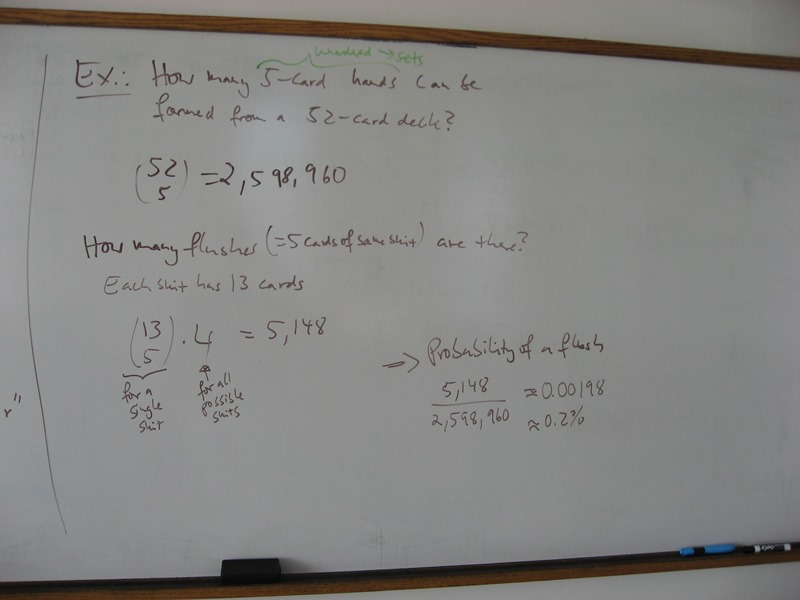 unordered → sets
Ex.: How many 5-card hands can be
formed from a 52-card deck?
(52 5) = 2,598,960
How many flushes (=5 cards of same suit) are there?
Each suit has 13 cards
(13 5) · 4 = 5,148
for a single suit
for all possible suits
=> Probability of a flush
5,148 / 2,598,960 ≈ 0.00198
≈ 0.2%
r"